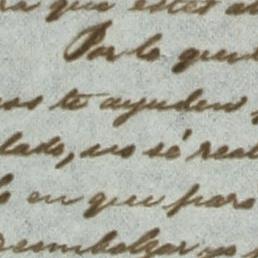 que estés
Por lo que
te ayuden
lado, no sé real
en que para
reembolzar yo